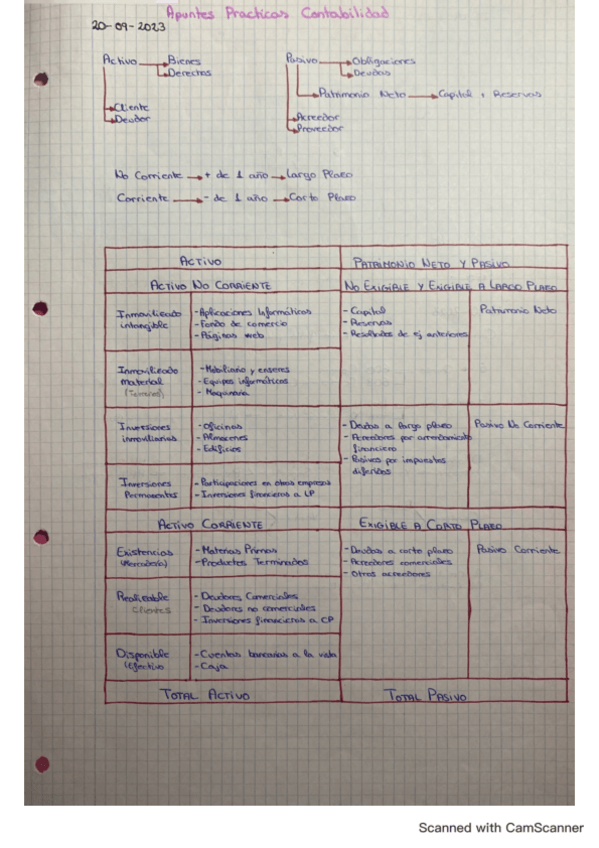 Apuntes Practicas Contabilidad
20-09-2023
Activo → Bienes
→ Derechos
→ Cliente
→ Deudor
Pasivo → Obligaciones
→ Deudas
→ Patrimonio Neto → Capital + Reservas
→ Acreedor
→ Proveedor
No Corriente → + de 1 año → Largo Plazo
Corriente → - de 1 año → Corto Plazo
ACTIVO
PATRIMONIO NETO Y PASIVO
ACTIVO NO CORRIENTE
NO EXIGIBLE Y EXIGIBLE A LARGO PLAZO
Inmovilizado
intangible
- Aplicaciones Informáticas
- Fondo de comercio
- Páginas web
- Capital
- Reservas
- Resultados de ej anteriores
Patrimonio Neto
Inmovilizado
material
(Terrenos)
- Mobiliario y enseres
- Equipos informáticos
- Maquinaria
Inversiones
inmoviliarias
- Oficinas
- Almacenes
- Edificios
- Deudas a largo plazo
- Acreedores por arrendamiento
financiero
- Pasivos por impuestos
diferidos
Pasivo No Corriente
Inversiones
Permanentes
- Participaciones en otras empresas
- Inversiones financieras a LP
ACTIVO CORRIENTE
EXIGIBLE A CORTO PLAZO
Existencias
(Mercadería)
- Materias Primas
- Productos Terminados
- Deudas a corto plazo
- Acreedores comerciales
- Otros acreedores
Pasivo Corriente
Realizable
Clientes
- Deudores Comerciales
- Deudores no comerciales
- Inversiones financieras a CP
Disponible
(Efectivo
- Cuentas bancarias a la vista
- Caja
TOTAL ACTIVO
TOTAL PASIVO
Scanned with CamScanner